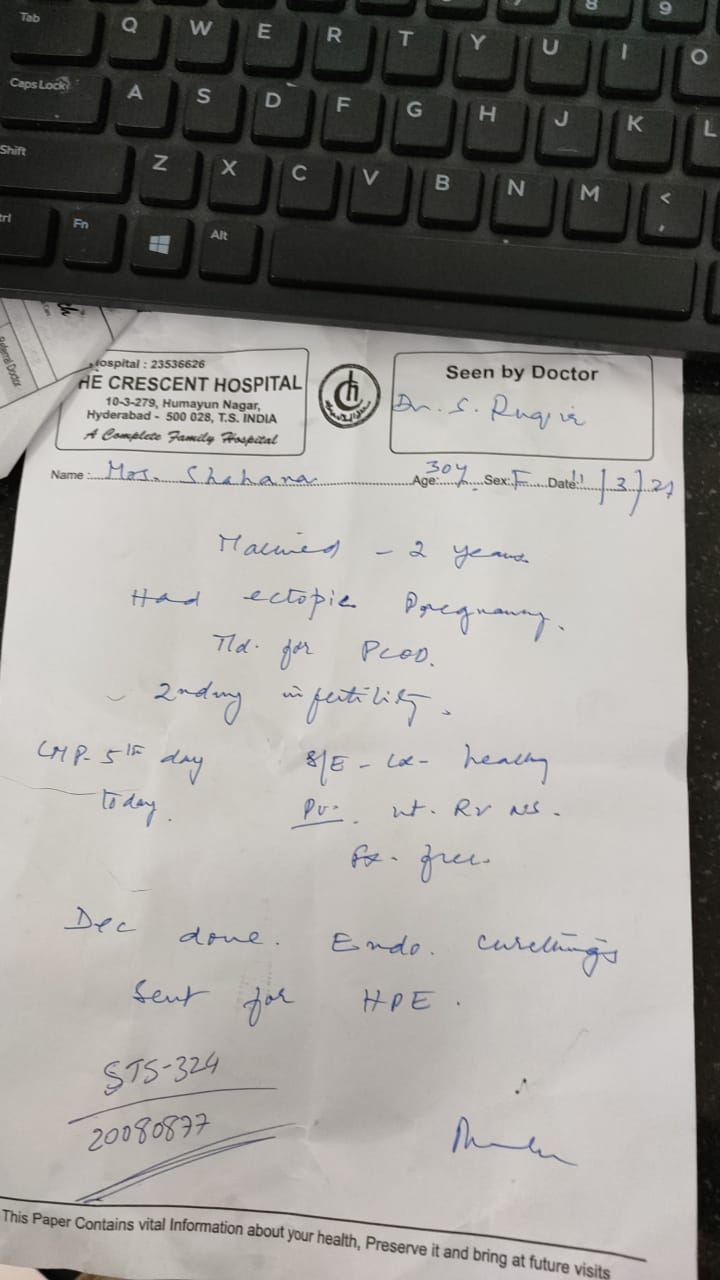 Tab Q W E R T Y U I O
8 9
Caps Lock A S D F G H J K L
Shift Z X C V B N M < ,
trl Fn Alt
Referral Doctor
ospital : 23536626
HE CRESCENT HOSPITAL
10-3-279, Humayun Nagar,
Hyderabad - 500 028, T.S. INDIA
A Complete Family Hospital
Seen by Doctor
Dr. S. Ruqia
Name : Mrs. Shahana Age: 30y Sex: F Date: 11/3/21
Married - 2 years
Had ectopic Pregnancy.
Ttd. for PCOD.
2ndary infertility.
LMP- 5th day S/E - Cx - healthy
today. PV. ut. RV NS.
Fx. free.
D&C done. Endo. curettings
Sent for HPE.
STS-324
20080877
This Paper Contains vital Information about your health, Preserve it and bring at future visits